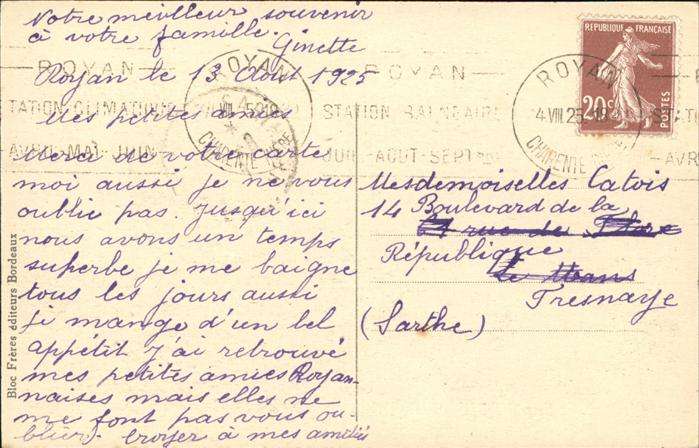 Notre meilleur souvenir
à votre famille.
Ginette
Royan le 13 Août 1925
Mes petites amies
Merci de votre carte
moi aussi je ne vous
oublie pas. Jusqu'ici
nous avons un temps
superbe je me baigne
tous les jours aussi
je mange d'un bel
appétit j'ai retrouvé
mes petites amies Royan-
naises mais elles ne
me font pas vous ou-
blier. Croyez à mes amitiés
Bloc Frères éditeurs Bordeaux
ROYAN
STATION CLIMATIQUE
AVRIL-MAI-JUIN
ROYAN
CHARENTE
ROYAN
STATION BALNEAIRE
JUIL-AOUT-SEPTBRE
ROYAN
4 VIII 25
CHARENTE
REPUBLIQUE FRANÇAISE
20c
POSTES
STATI
AVR
Mesdemoiselles Catois
14 Boulevard de la
rue de
République
Le Mans
Fresnaye
(Sarthe)